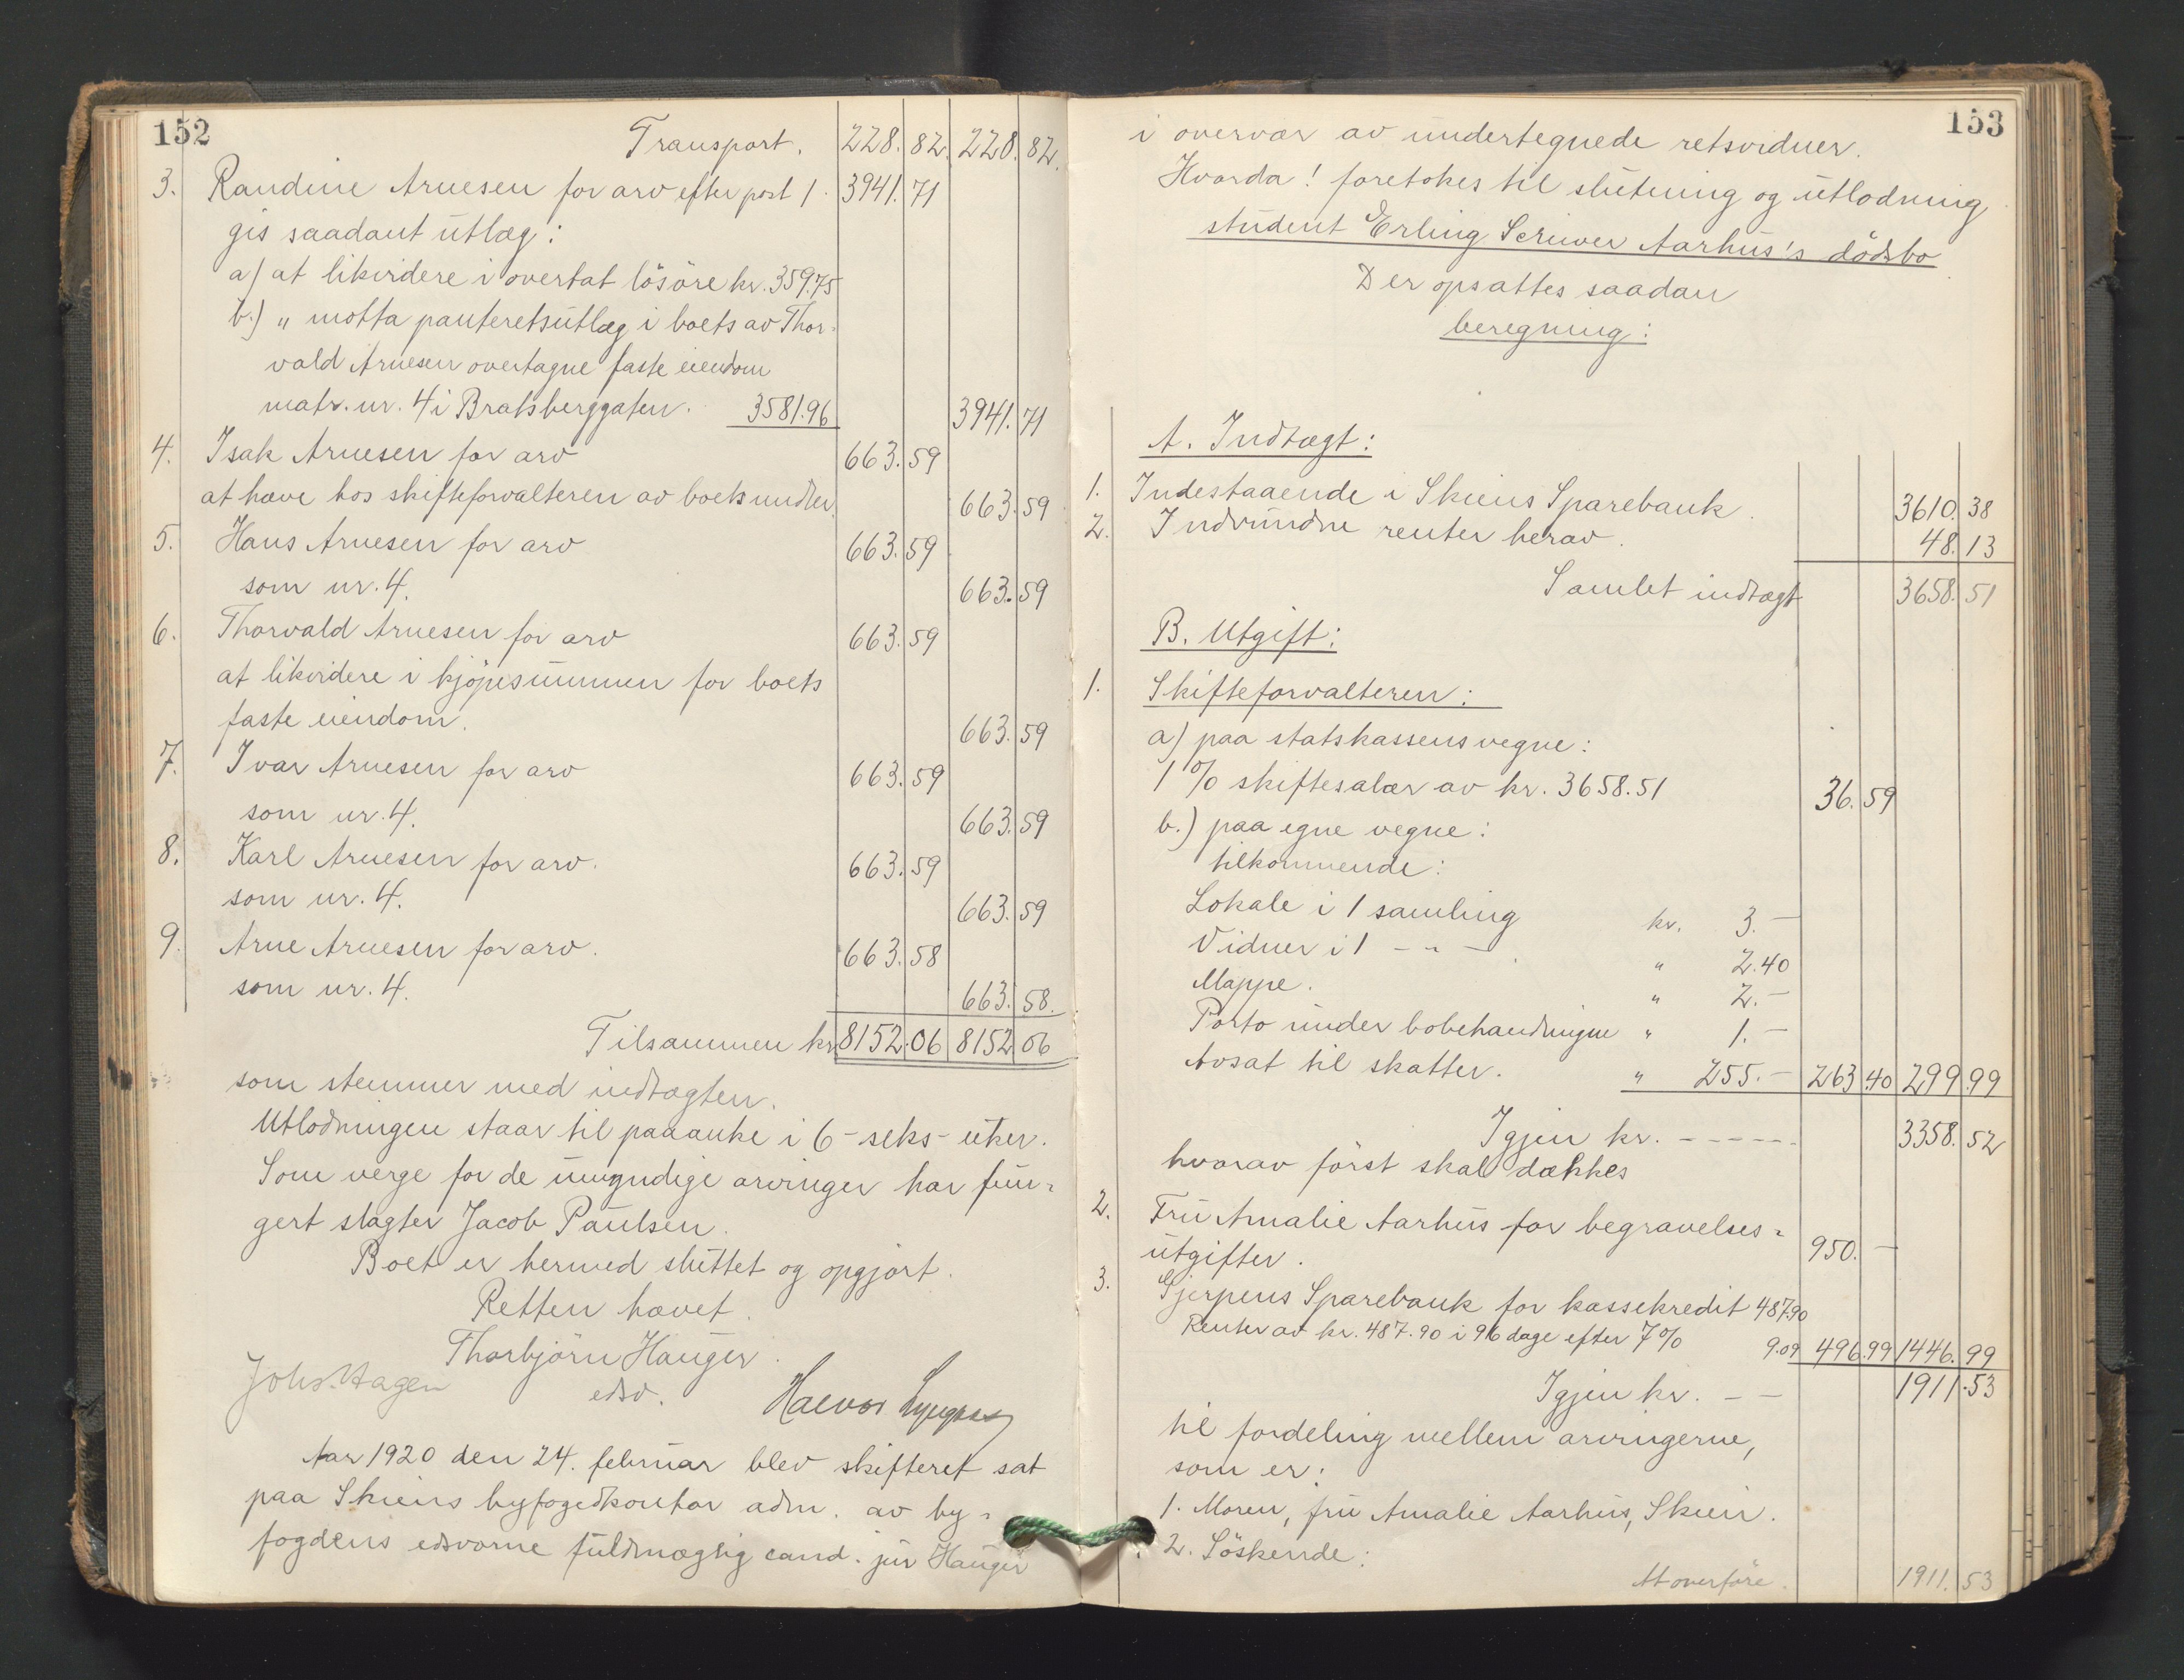 152
Transport. 228. 82. 228. 82.
3. Randine Arnesen for arv efter post 1. 3941. 71
gis saadant utlæg:
a) at likvidere i overtat lösöre kr. 359.75
b.) „ motta panteretsutlæg i boets av Thor-
vald Arnesen overtagne faste eiendom
matr. nr. 4 i Bratsberggaten. 3581.96 3941. 71
4. Isak Arnesen for arv 663. 59
at hæve hos skifteforvalteren av boets midler. 663. 59
5. Hans Arnesen for arv 663. 59
som nr. 4. 663. 59
6. Thorvald Arnesen for arv 663. 59
at likvidere i kjöpesummen for boets
faste eiendom. 663. 59
7. Ivar Arnesen for arv 663. 59
som nr. 4. 663. 59
8. Karl Arnesen for arv. 663. 59
som nr. 4. 663. 59
9. Arne Arnesen for arv. 663. 58
som nr. 4. 663. 58.
Tilsammen kr. 8152. 06 8152 06
som stemmer med indtægten.
Utlodningen staar til paaanke i 6 - seks - uker.
Som verge for de umyndige arvinger har fun-
gert slagter Jacob Paulsen.
Boet er hermed sluttet og opgjort.
Retten hævet.
Thorbjörn Hauger.
Johs. Hagen edsv. Halvor
Aar 1920 den 24. februar blev skifteret sat
paa Skiens byfogedkontor adm. av by-
fogdens edsvorne fuldmægtig cand. jur Hauger
153
i overvær av undertegnede retsvidner.
Hvorda! foretokes til slutning og utlodning
student Erling Scriver Aarhus's dödsbo
Der opsattes saadan
beregning:
A. Indtægt:
1. Indestaaende i Skiens Sparebank. 3610. 38
2. Indvundne renter herav. 48. 13
Samlet indtægt 3658. 51
B. Utgift:
1. Skifteforvalteren:
a) paa statskassens vegne:
1 % skiftesalær av kr. 3658.51 36. 59
b.) paa egne vegne:
tilkommende:
Lokale i 1 samling kr. 3.—
Vidner i 1 - „ - . „ 2.40
Mappe. „ 2.—
Porto under bobehandlingen „ 1.—
Avsat til skatter. „ 255.— 263 .40 299 .99
Igjen kr. ------ 3358. 52
hvorav först skal dækkes
2. Fru Amalie Aarhus for begravelses-
utgifter. 950. —
3. Gjerpens Sparebank for kassekredit 487.90
Renter av kr. 487.90 i 96 dage efter 7% 9.09 496.99 1446. 99
Igjen kr. -- 1911.53
til fordeling mellem arvingerne,
som er:
1. Moren, fru Amalie Aarhus, Skien.
2. Söskende:
At overföre. 1911. 53